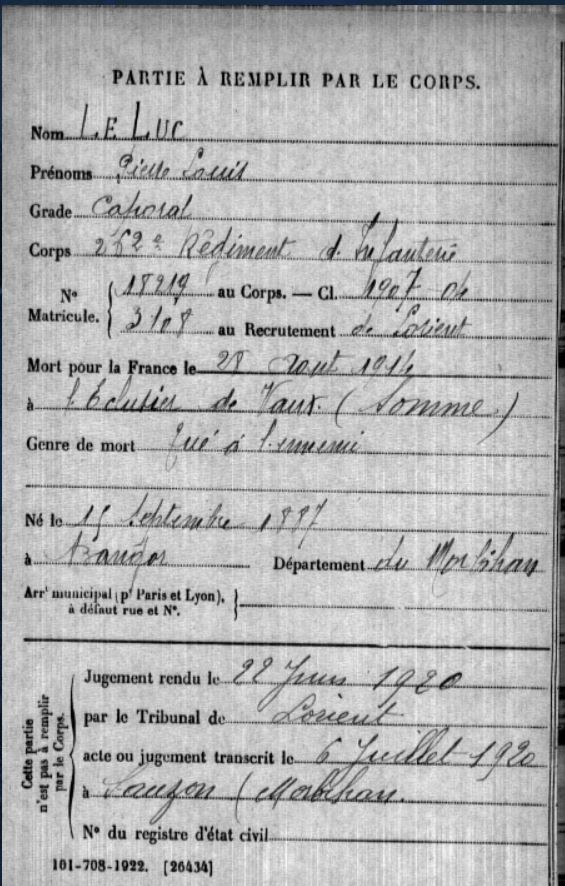 PARTIE À REMPLIR PAR LE CORPS.
Nom LE LUC
Prénoms Pierre Louis
Grade Caporal
Corps 262e Régiment d'Infanterie
No Matricule. { 18219 au Corps. — Cl. 1907
3108 au Recrutement de Lorient
Mort pour la France le 28 août 1914
à l'Eclusier de Vaux (Somme)
Genre de mort Tué à l'ennemi
Né le 15 Septembre 1887
à Bangor Département du Morbihan
Arrt municipal (pr Paris et Lyon), }
à défaut rue et No.
Cette partie n'est pas à remplir par le Corps.
Jugement rendu le 22 Juin 1920
par le Tribunal de Lorient
acte ou jugement transcrit le 6 Juillet 1920
à Sauzon (Morbihan.
No du registre d'état civil
101-708-1922. [26434]